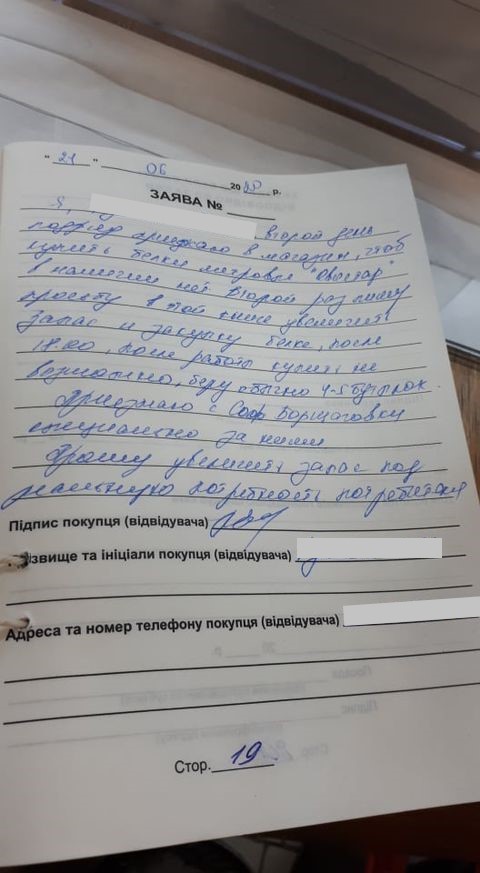 "21" 06 20 р.
ЗАЯВА №
Я, второй день
подряд приезжаю в магазин, чтоб
купить белки метровые
в наличии нет. Второй раз пишу
просьбу в той книге увеличить
запас и закупку белке, после
18.00, после работы купить не
возможно, беру обычно 4-5 бутылок.
Приезжаю с Соф Борщаговки
специально за ними
Прошу увеличить запас под
реальную потребность потребителя
Підпис покупця (відвідувача)
ізвище та ініціали покупця (відвідувача)
Адреса та номер телефону покупця (відвідувача)
Стор. 19